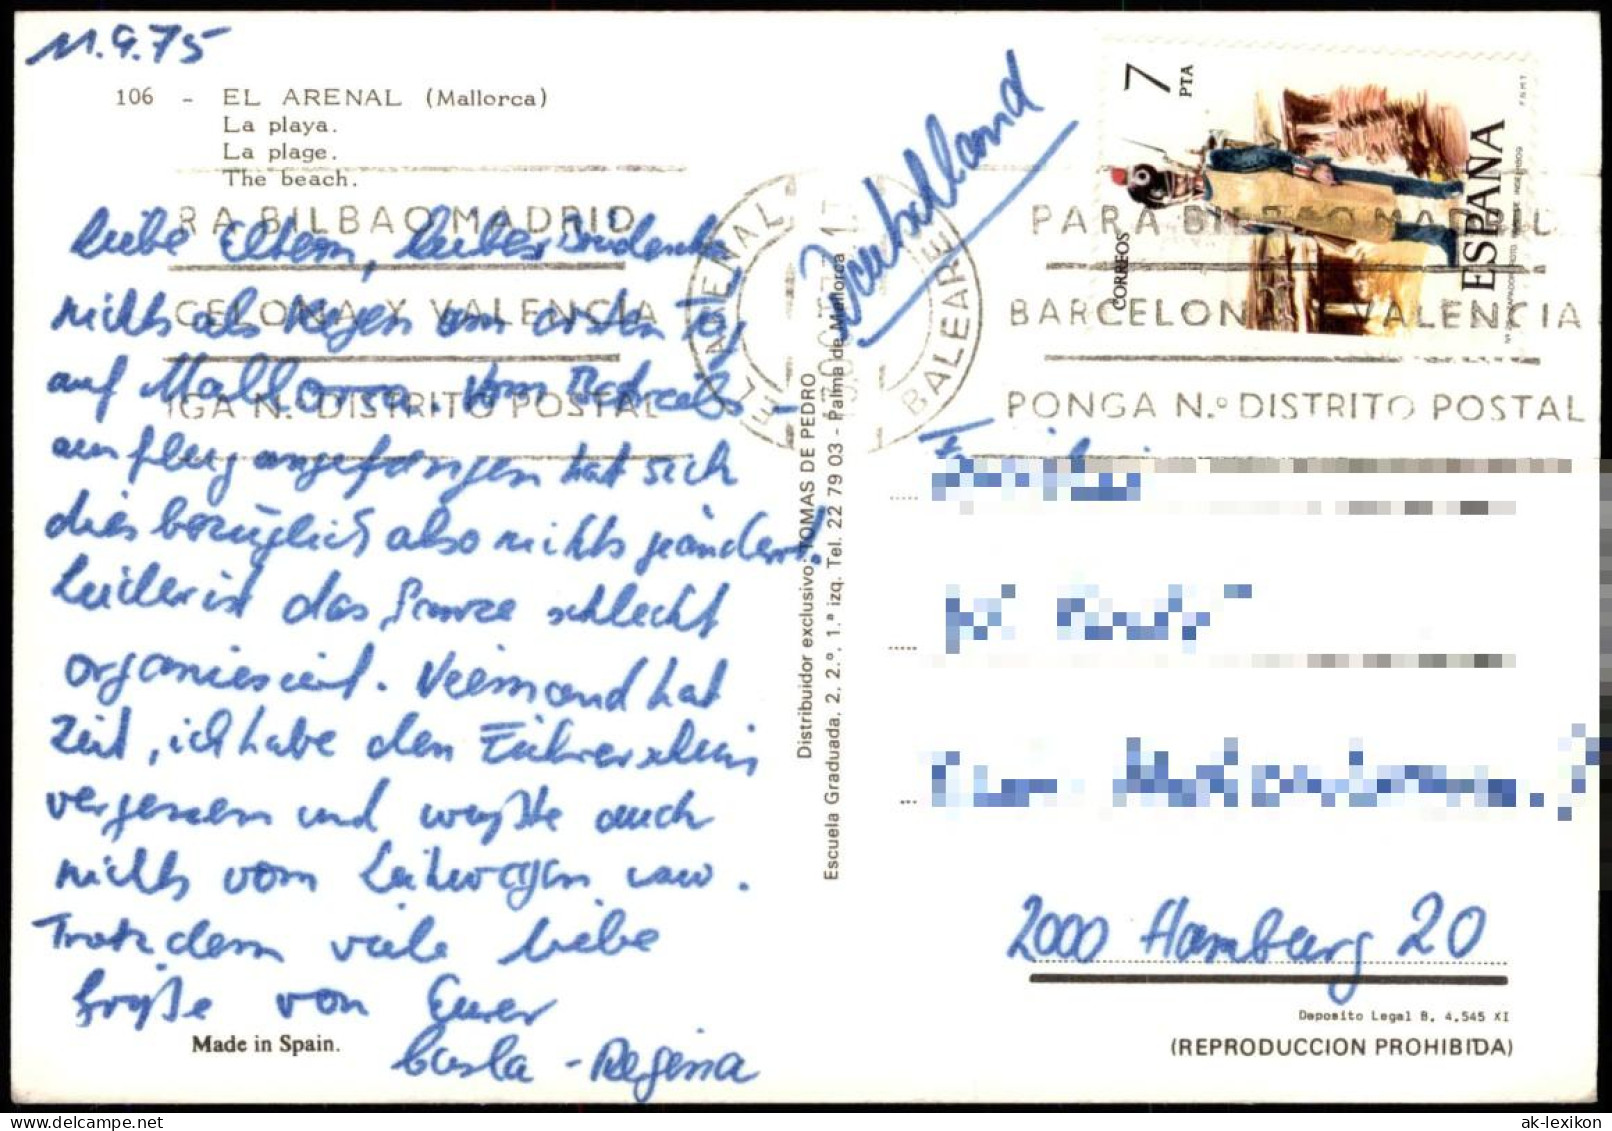 11.9.75
106 - EL ARENAL (Mallorca)
La playa.
La plage.
The beach.
RA BILBAO MADRID
CELONA Y VALENCIA
GA N.º DISTRITO POSTAL
Liebe Eltern, lieber
nichts als Regen am ersten Tag
auf Mallorca. Vom Betriebs-
ausflug angefangen hat sich
diesbezüglich also nichts geändert!
Leider ist das Ganze schlecht
organiesiert. Niemand hat
Zeit, ich habe den Führerschein
vergessen und wußte auch
nichts vom Leihwagen usw.
Trotzdem viele liebe
Grüße von Eurer
Carla - Regina
Made in Spain.
Distribuidor exclusivo: TOMAS DE PEDRO
Escuela Graduada, 2, 2.º, 1.ª izq. Tel. 22 79 03 - Palma de Mallorca
EL ARENAL
BALEARE
Deutschland
7 PTA
CORREOS
ESPAÑA
F.N.M.T.
PARA BILBAO MADRID
BARCELONA Y VALENCIA
PONGA N.º DISTRITO POSTAL
2000 Hamburg 20
Deposito Legal B. 4.545 XI
(REPRODUCCION PROHIBIDA)
www.delcampe.net
ak-lexikon